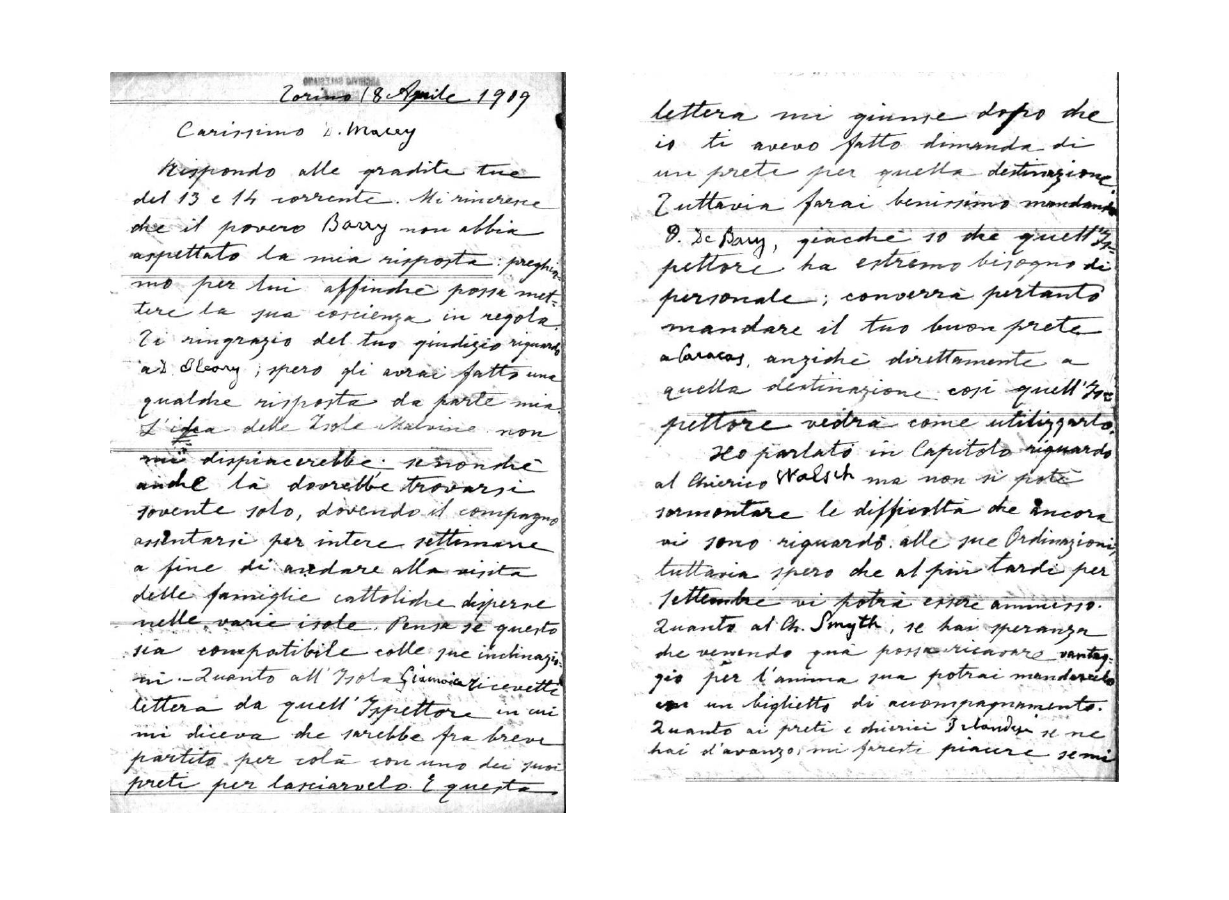 Torino 18 Aprile 1909
Carissimo D. Macey
Rispondo alle gradite tue
del 13 e 14 corrente. Mi rincresce
che il povero Barry non abbia
aspettato la mia risposta: preghia-
mo per lui affinchè possa met-
tere la sua coscienza in regola.
Ti ringrazio del tuo giudizio riguardo
a D. O'Leary; spero gli avrai fatto una
qualche risposta da parte mia.
L'idea delle Isole Malvine non
mi dispiacerebbe: senonchè
anche là dovrebbe trovarsi
sovente solo, dovendo il compagno
assentarsi per intere settimane
a fine di andare alla visita
delle famiglie cattoliche disperse
nelle varie isole. Pensa se questo
sia compatibile colle sue inclinazio-
ni. - Quanto all'Isola Giamaica ricevetti
lettera da quell'Ispettore in cui
mi diceva che sarebbe fra breve
partito per colà con uno dei suoi
preti per lasciarvelo. E questa
lettera mi giunse dopo che
io ti avevo fatto dimanda di
un prete per quella destinazione
Tuttavia farai benissimo mandando
D. De Bary, giacchè so che quell'Is-
pettore ha estremo bisogno di
personale; converrà pertanto
mandare il tuo buon prete
a Caracas, anzichè direttamente a
quella destinazione così quell'Is-
pettore vedrà come utilizzarlo.
Ho parlato in Capitolo riguardo
al Chierico Walsch ma non si potè
sormontare le difficoltà che ancora
vi sono riguardo alle sue Ordinazioni,
tuttavia spero che al più tardi per
Settembre vi potrà essere ammesso.
Quanto al Ch. Smyth, se hai speranza
che venendo quà possa ricavare vantag-
gio per l'anima sua potrai mandarcelo
con un biglietto di accompagnamento.
Quanto ai preti e chierici Irlandesi se ne
hai d'avanzo, mi faresti piacere se mi